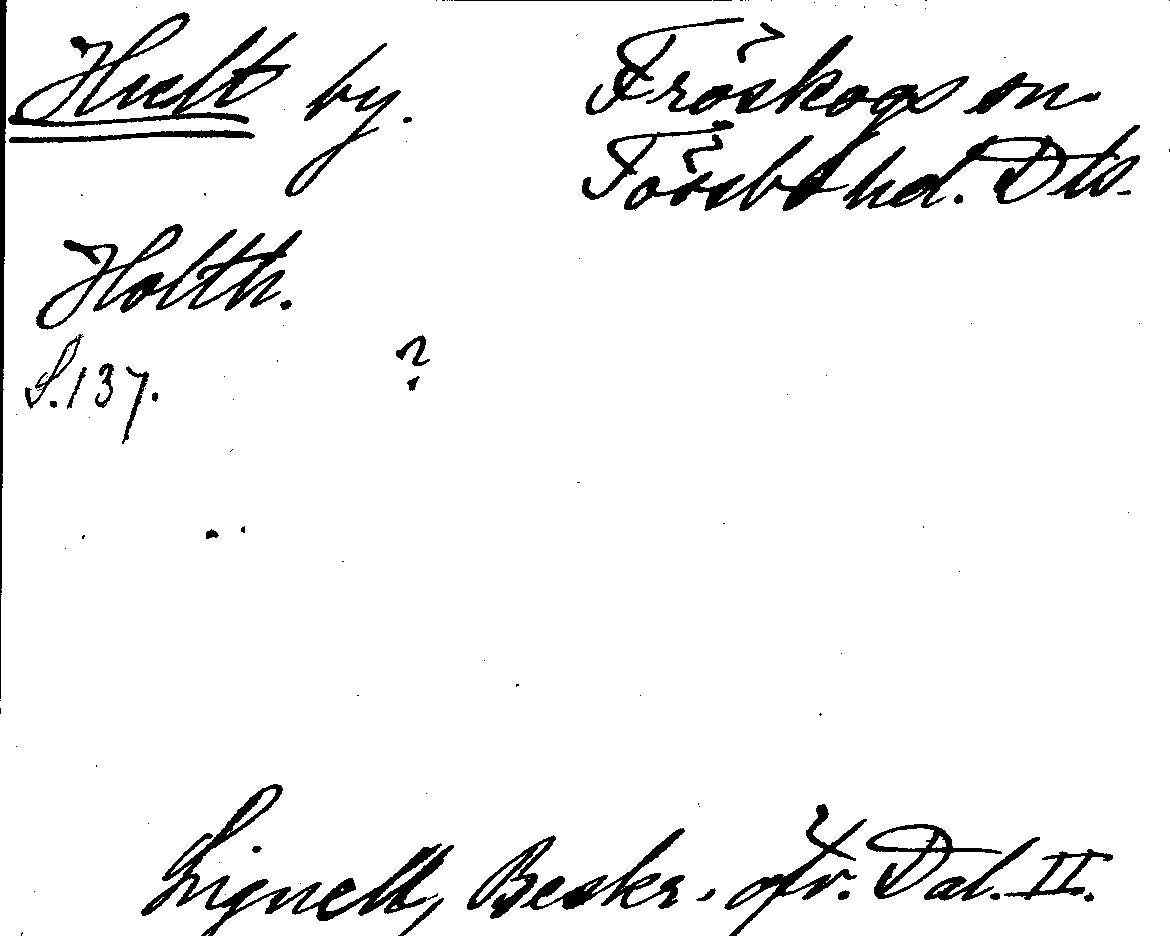 Hult by.
Fröskogs sn.
Tössbo hd. Dls.
Holth.
S. 137.
?
Lignell, Beskr. öfv. Dal. II.